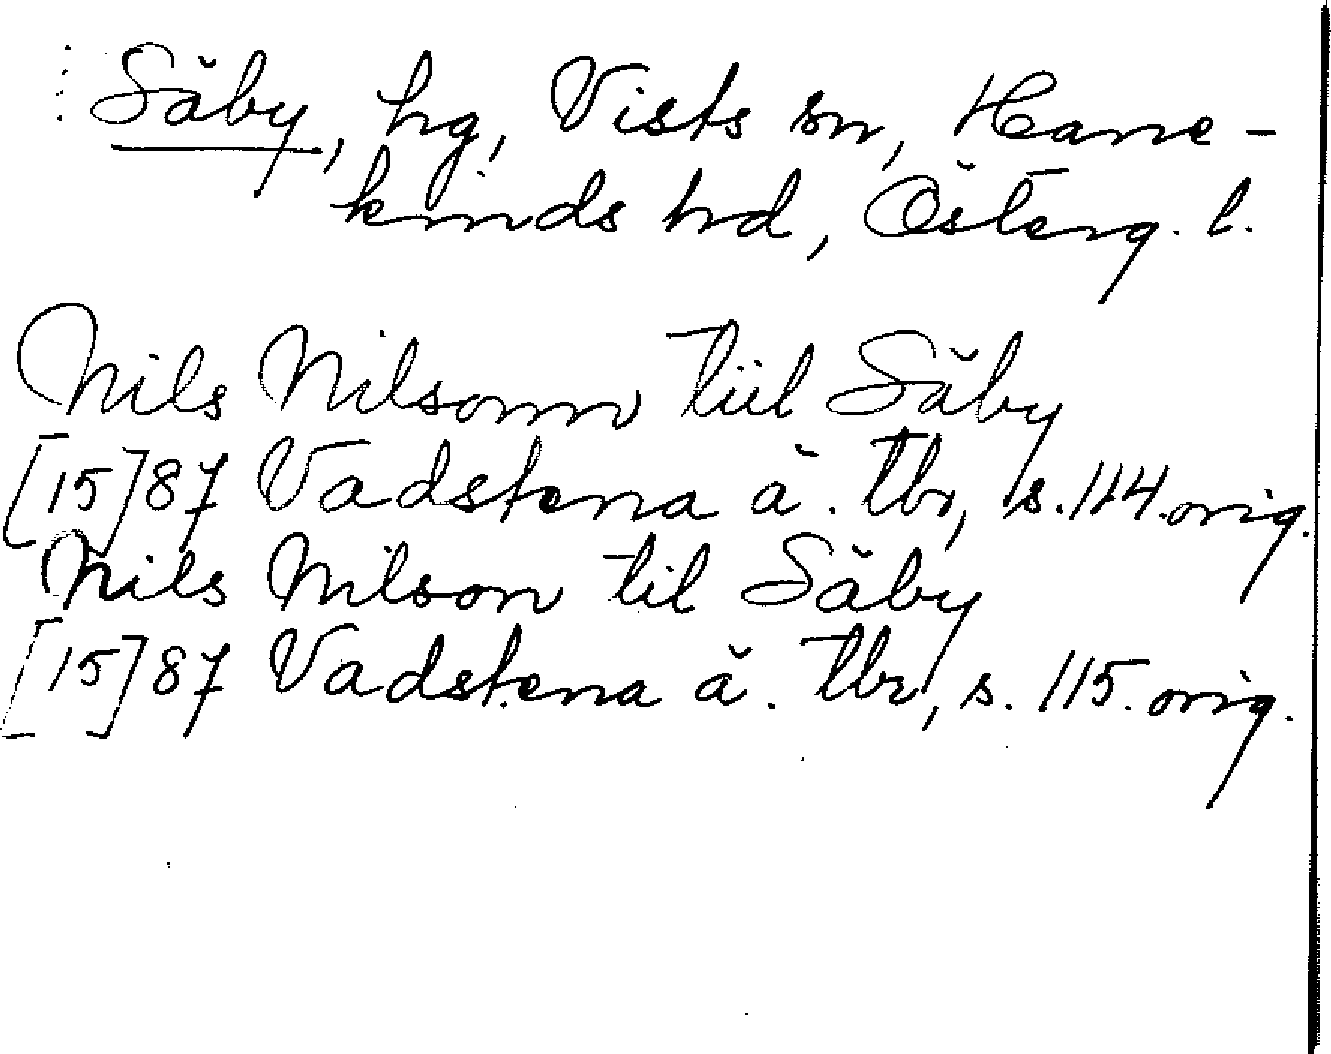 Säby, hg, Vists sn, Hane-
kinds hd, Österg. l.
Nils Nilsonn tiil Säby
[15]87 Vadstena ä. tbr, s. 114. orig.
Nils Nilson til Säby
[15]87 Vadstena ä. tbr, s. 115. orig.